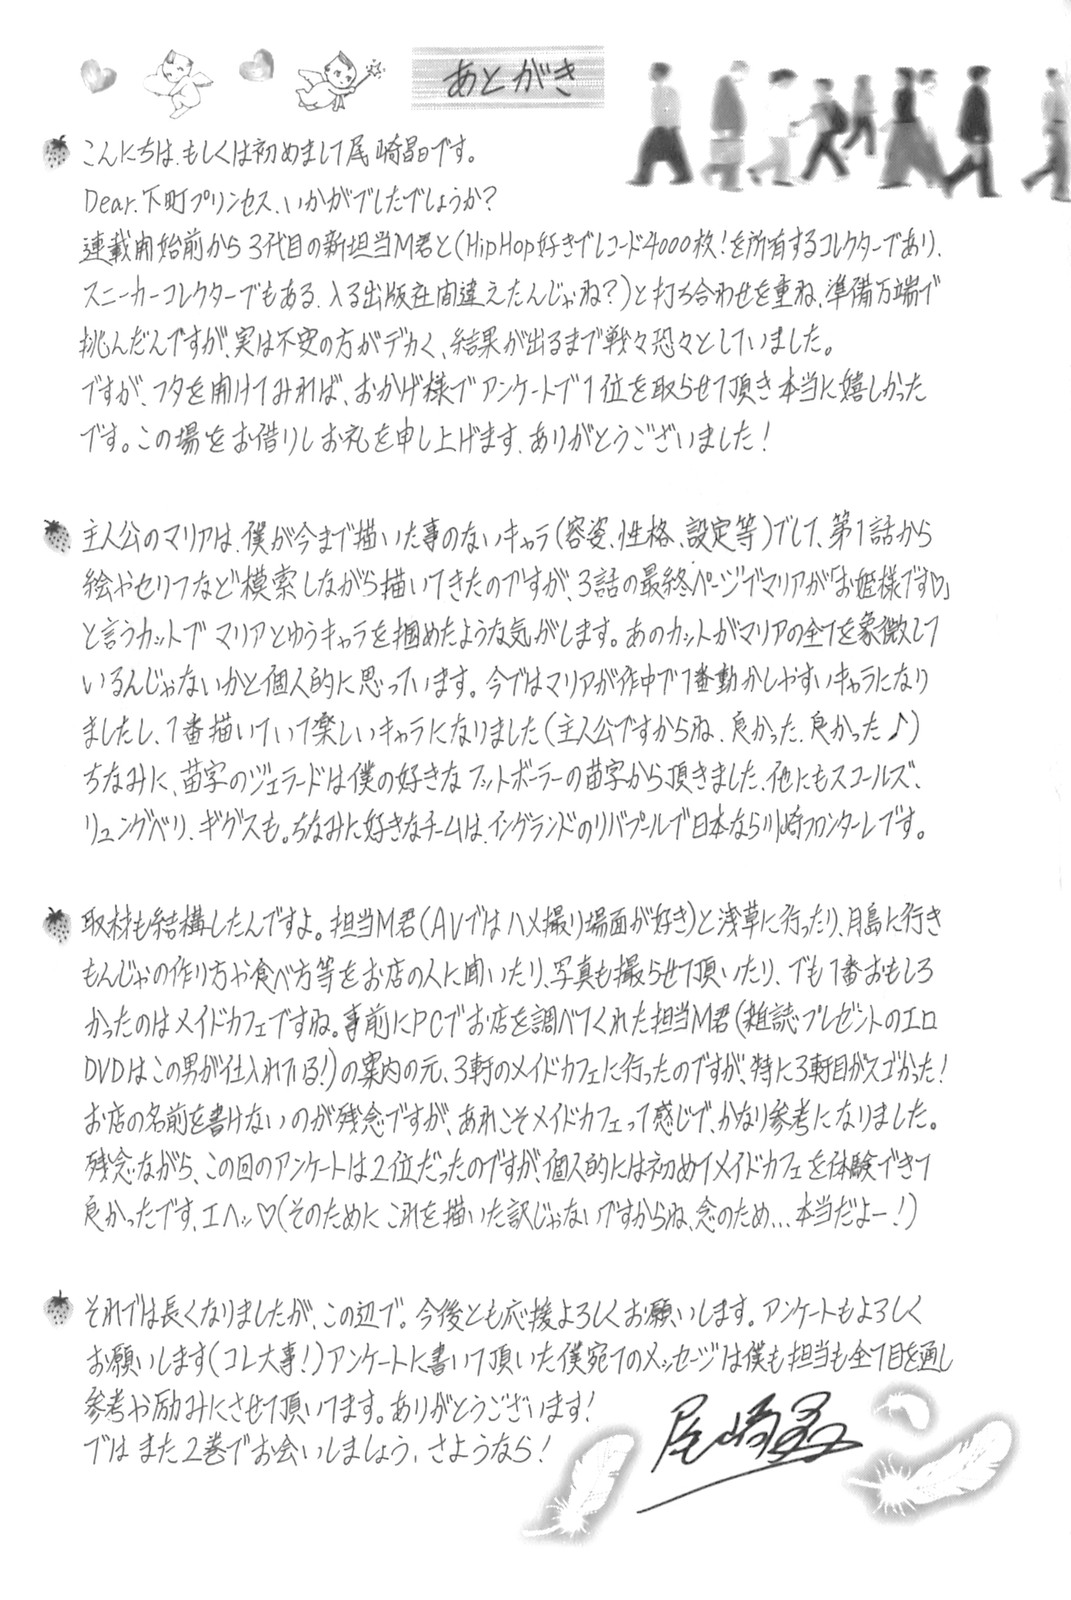 あとがき
こんにちは、もしくは初めまして尾崎晶です。
Dear.下町プリンセス、いかがでしたでしょうか?
連載開始前から3代目の新担当M君と(HipHop好きでレコード4000枚!を所有するコレクターであり、
スニーカーコレクターでもある、入る出版社間違えたんじゃね?)と打ち合わせを重ね、準備万端で
挑んだんですが、実は不安の方がデカく、結果が出るまで戦々恐々としていました。
ですが、フタを開けてみれば、おかげ様でアンケートで1位を取らせて頂き本当に嬉しかった
です。この場をお借りしお礼を申し上げます、ありがとうございました!
主人公のマリアは、僕が今まで描いた事のないキャラ(容姿、性格、設定等)でして、第1話から
絵やセリフなど模索しながら描いてきたのですが、3話の最終ページでマリアが「お姫様です♡」
と言うカットでマリアとゆうキャラを掴めたような気がします。あのカットがマリアの全てを象徴して
いるんじゃないかと個人的に思っています。今ではマリアが作中で1番動かしやすいキャラになり
ましたし、1番描いていて楽しいキャラになりました(主人公ですからね、良かった、良かった♪)
ちなみに、苗字のジェラードは僕の好きなフットボーラーの苗字から頂きました、他にもスコールズ、
リュングベリ、ギグスも。ちなみに好きなチームは、イングランドのリバプールで日本なら川崎フロンターレです。
取材も結構したんですよ。担当M君(AVではハメ撮り場面が好き)と浅草に行ったり、月島に行き
もんじゃの作り方や食べ方等をお店の人に聞いたり、写真も撮らせて頂いたり、でも1番おもしろ
かったのはメイドカフェですね。事前にPCでお店を調べてくれた担当M君(雑誌プレゼントのエロ
DVDはこの男が仕入れている!)の案内の元、3軒のメイドカフェに行ったのですが、特に3軒目がスゴかった!
お店の名前を書けないのが残念ですが、あれこそメイドカフェって感じで、かなり参考になりました。
残念ながら、この回のアンケートは2位だったのですが、個人的には初めてメイドカフェを体験できて
良かったです、エヘッ♡(そのためにこれを描いた訳じゃないですからね、念のため…本当だよー!)
それでは長くなりましたが、この辺で。今後とも応援よろしくお願いします。アンケートもよろしく
お願いします(コレ大事!)アンケートに書いて頂いた僕宛てのメッセージは僕も担当も全て目を通し
参考や励みにさせて頂いてます。ありがとうございます!
ではまた2巻でお会いしましょう、さようなら!
尾崎晶